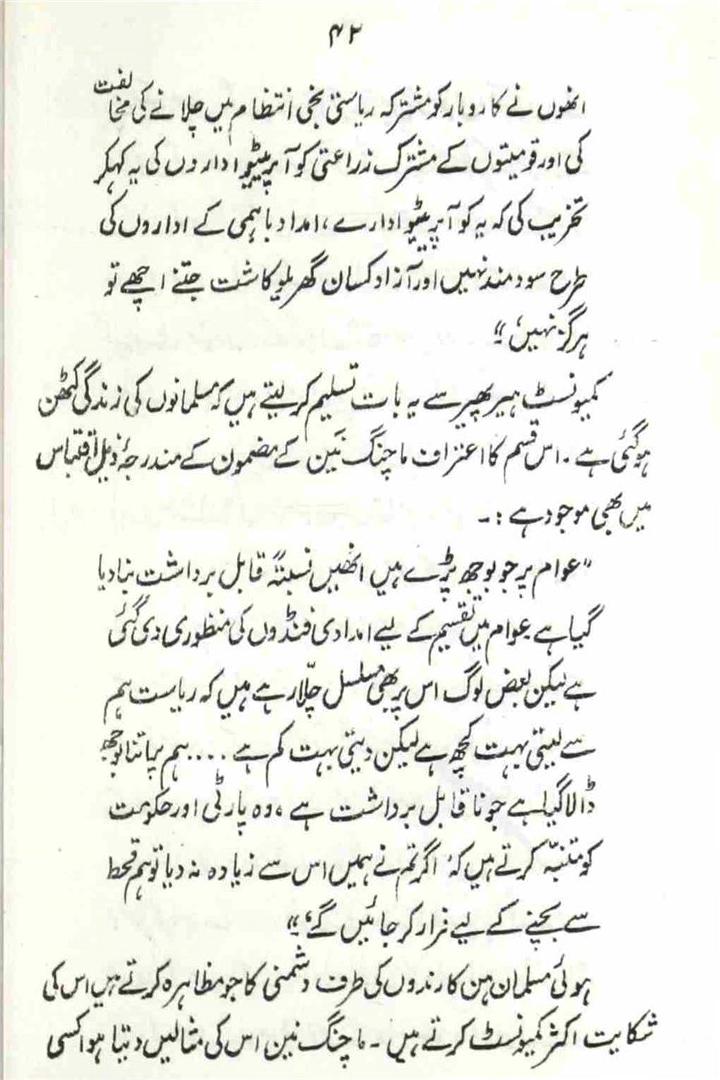 ۴۲
انھوں نے کاروبار کو مشترکہ ریاستی نجی انتظام میں چلانے کی مخالفت
کی اور قومیتوں کے مشترک زراعتی کو آپریٹیو اداروں کی یہ کہکر
تخریب کی کہ یہ کو آپریٹیو ادارے ، امداد باہمی کے اداروں کی
طرح سودمند نہیں اور آزاد کسان گھریلو کاشت جتنے اچھے تو
ہرگز نہیں ؛"
کمیونسٹ ہیر پھیر سے یہ بات تسلیم کر لیتے ہیں کہ مسلمانوں کی زندگی کٹھن
ہو گئی ہے ۔ اس قسم کا اعتراف ماچنگ نین کے مضمون کے مندرجۂ ذیل اقتباس
میں بھی موجود ہے :۔
"عوام پر جو بوجھ پڑے ہیں انھیں نسبتہً قابل برداشت بنا دیا
گیا ہے عوام میں تقسیم کے لیے امدادی فنڈوں کی منظوری دی گئی
ہے لیکن بعض لوگ اس پر بھی مسلسل چلّا رہے ہیں کہ ریاست ہم
سے لیتی بہت کچھ ہے لیکن دیتی بہت کم ہے .... ہم پر اتنا بوجھ
ڈالا گیا ہے جو ناقابل برداشت ہے ، وہ پارٹی اور حکومت
کو متنبّہ کرتے ہیں کہ 'اگر تم نے ہمیں اس سے زیادہ نہ دیا تو ہم قحط
سے بچنے کے لیے فرار کر جائیں گے'؛"
ہوئی مسلمان ہن کارندوں کی طرف دشمنی کا جو مظاہرہ کرتے ہیں اس کی
شکایت اکثر کمیونسٹ کرتے ہیں ۔ ماچنگ نین اس کی مثالیں دیتا ہوا کسی